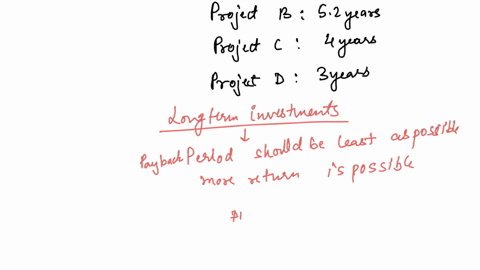 Project B: 5.2 years
Project C: 4 years
Project D: 3 years
Longterm investments
Payback Period should be least as possible
more return is possible
$1